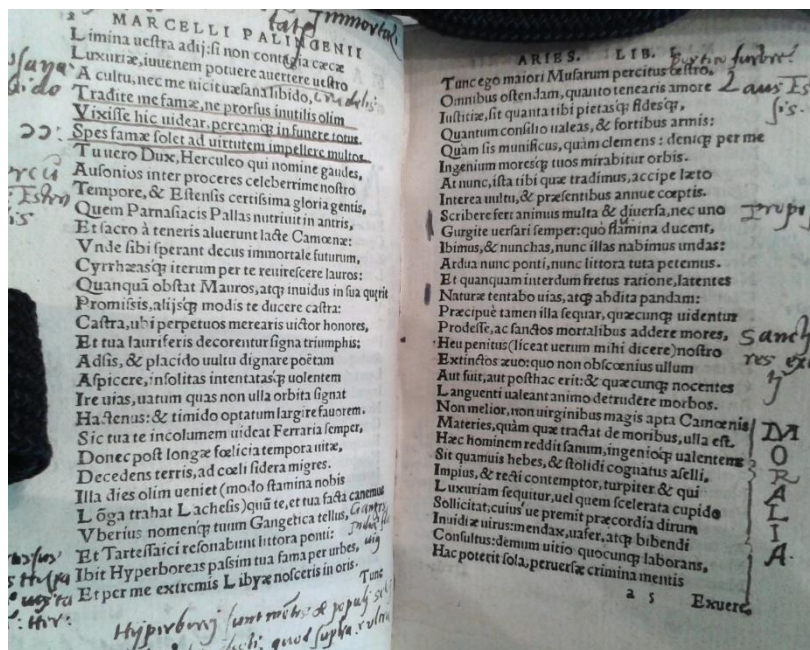 MARCELLI PALINGENII
Limina uestra adij: si non contagia cæcæ
Luxuriæ, iuuenem potuere auertere uestro
A cultu, nec me uicit uæsana libido,
Tradite me famæ, ne prorsus inutilis olim
Vixisse hic uidear, peream&#42779; in funere totus.
Spes famæ solet ad uirtutem impellere multos.
Tu uero Dux, Herculeo qui nomine gaudes,
Ausonios inter proceres celeberrime nostro
Tempore, & Estensis certissima gloria gentis,
Quem Parnasiacis Pallas nutriuit in antris,
Et sacro à teneris aluerunt lacte Camœnæ:
Vnde sibi sperant decus immortale futurum,
Cyrrhæasq́; iterum per te reuirescere lauros:
Quanquã obstat Mauros, atq; inuidus in sua querit
Promissis, alijsq́; modis te ducere castra:
Castra, ubi perpetuos merearis uictor honores,
Et tua lauriferis decorentur signa triumphis:
Adsis, & placido uultu dignare poëtam
Aspicere, insolitas intentatasq́; uolentem
Ire uias, uatum quas non ulla orbita signat
Hactenus: & timido optatum largire fauorem.
Sic tua te incolumem uideat Ferraria semper,
Donec post longæ fœlicia tempora uitæ,
Decedens terris, ad cœli sidera migres.
Illa dies olim ueniet (modo stamina nobis
Lõga trahat Lachesis) quũ te, et tua facta canemus
Vberius nomenq́; tuum Gangetica tellus,
Et Tartessiaci resonabunt littora ponti:
Ibit Hyperboreas passim tua fama per urbes,
Et per me extremis Libyæ nosceris in oris.
Tunc
ARIES. LIB. I.
Tunc ego maiori Musarum percitus œstro,
Omnibus ostendam, quanto tenearis amore
Iustitiæ, sit quanta tibi pietasq́; fidesq́;,
Quantum consilio ualeas, & fortibus armis:
Quàm sis munificus, quàm clemens: deniq; per me
Ingenium moresq́; tuos mirabitur orbis.
At nunc, ista tibi quæ tradimus, accipe læto
Interea uultu, & præsentibus annue cœptis.
Scribere fert animus multa & diuersa, nec uno
Gurgite uersari semper: quò flamina ducent,
Ibimus, & nunc has, nunc illas nabimus undas:
Ardua nunc ponti, nunc littora tuta petemus.
Et quanquam interdum fretus ratione, latentes
Naturæ tentabo uias, atq; abdita pandam:
Præcipuè tamen illa sequar, quæcunq; uidentur
Prodesse, ac sanctos mortalibus addere mores,
Heu penitus (liceat uerum mihi dicere) nostro
Extinctos æuo: quo non obscœnius ullum
Aut fuit, aut posthac erit: & quæcunq; nocentes
Languenti ualeant animo detrudere morbos.
Non melior, non uirginibus magis apta Camœnis
Materies, quàm quæ tractat de moribus, ulla est.
Hæc hominem reddit sanum, ingenioq́; ualentem
Sit quamuis hebes, & stolidi cognatus aselli,
Impius, & recti contemptor, turpiter & qui
Luxuriam sequitur, uel quem scelerata cupido
Sollicitat, cuius'ue premit præcordia dirum
Inuidiæ uirus: mendax, uafer, atq; bibendi
Consultus: demum uitio quocunq; laborans,
Hac poterit sola, peruersæ crimina mentis
a 5 Exuere,
MORALIA.